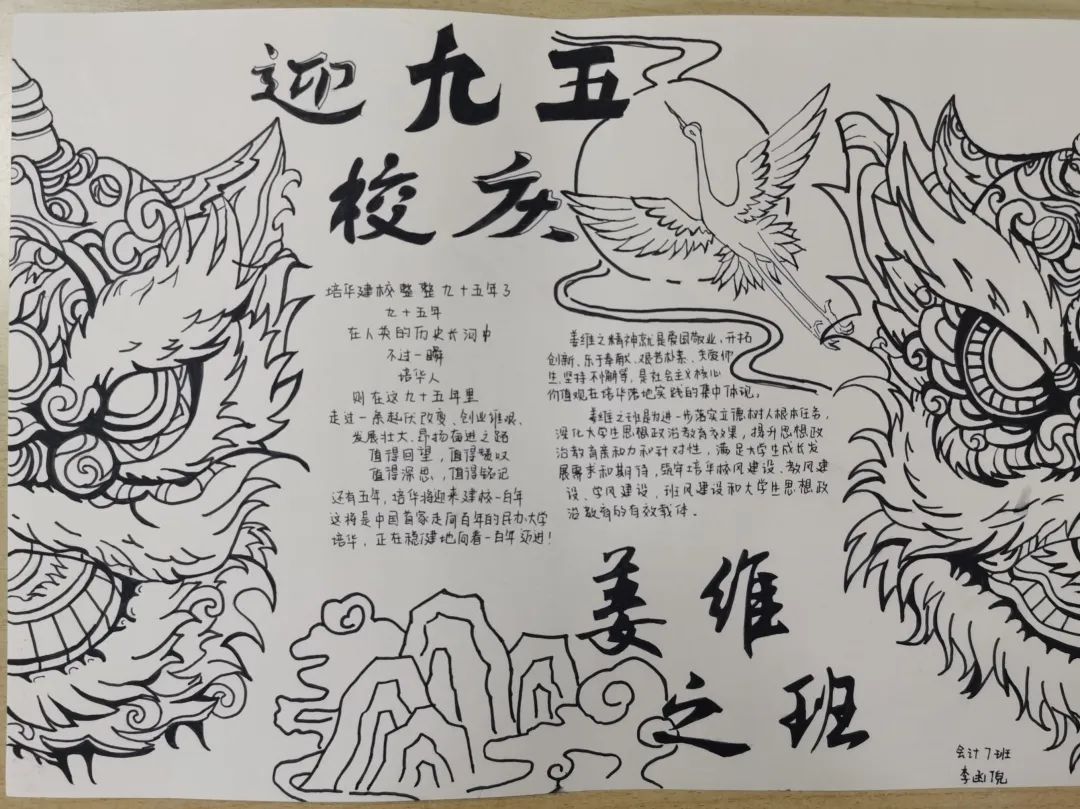 迎九五
校庆
培华建校整整九十五年了
九十五年
在人类的历史长河中
不过一瞬
培华人
则在这九十五年里
走过一条起伏改变、创业维艰、
发展壮大、昂扬奋进之路
值得回望，值得
值得深思，值得铭记
还有五年，培华将迎来建校一百年
这将是中国首家走向百年的民办大学
培华，正在稳健地向着一百年迈进！
姜维之精神就是爱国敬业、开拓
创新、乐于奉献、艰苦朴素、关爱师
生、坚持不懈等，是社会主义核心
价值观在培华落地实践的集中体现。
姜维之班是为进一步落实立德树人根本任务，
深化大学生思想政治教育效果，提升思想政
治教育亲和力和针对性，满足大学生成长发
展需求和期待，筑牢培华校风建设、教风建
设、学风建设、班风建设和大学生思想政
治教育的有效载体。
姜维
之班
会计7班
李函